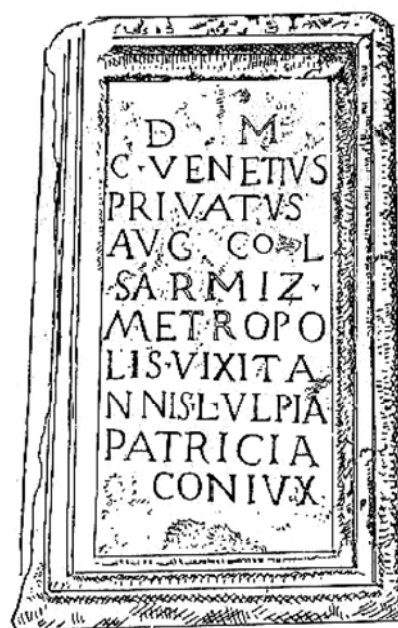 D M
C·VENETIVS
PRIVATVS
AVG COL
SARMIZ·
METROPO
LIS·VIXIT A
NNIS·L·VLPIA
PATRICIA
CONIVX